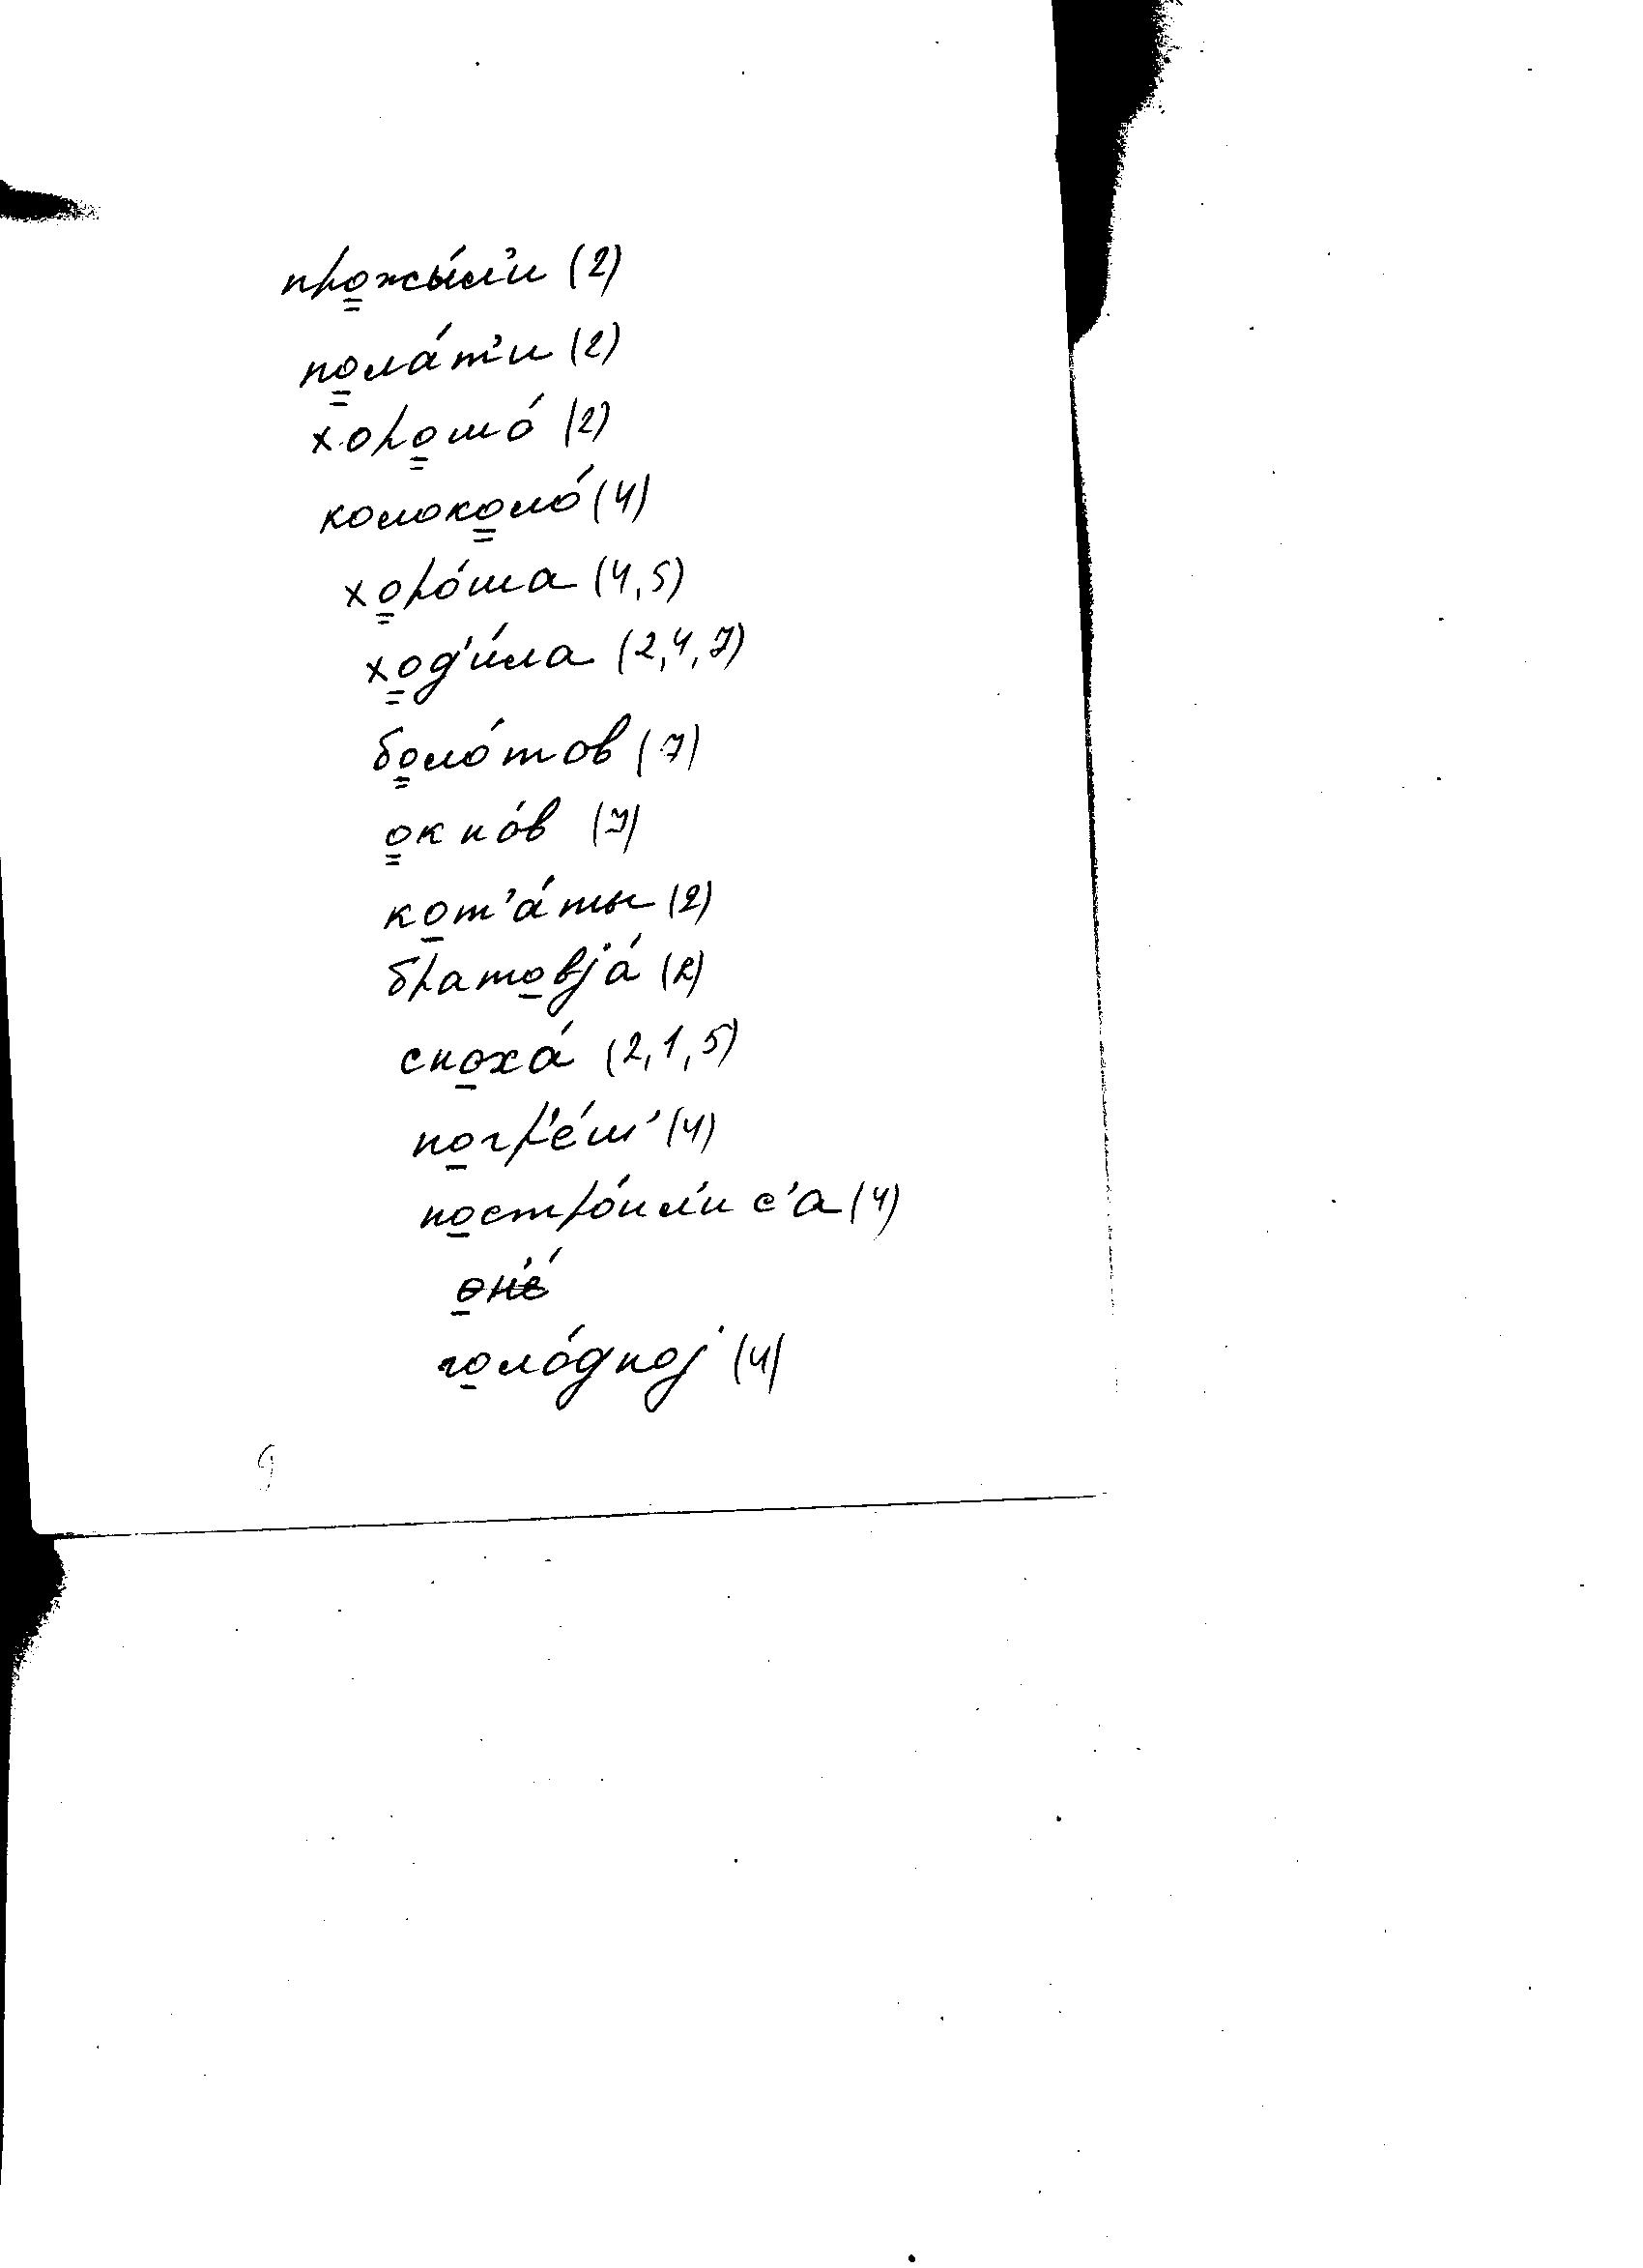 прожы́л'и (2)
пола́т'и (2)
хорошо́ (2)
колоколо́ (4)
хоро́ша (4,5)
ход'и́ла (2,4,7)
боло́тов (7)
окно́в (7)
кот'а́ты (2)
братовjа́ (2)
сноха́ (2,1,5)
погр'е́ш' (4)
постро́ил'ис'а (4)
он'е́
голо́дноj (4)
9